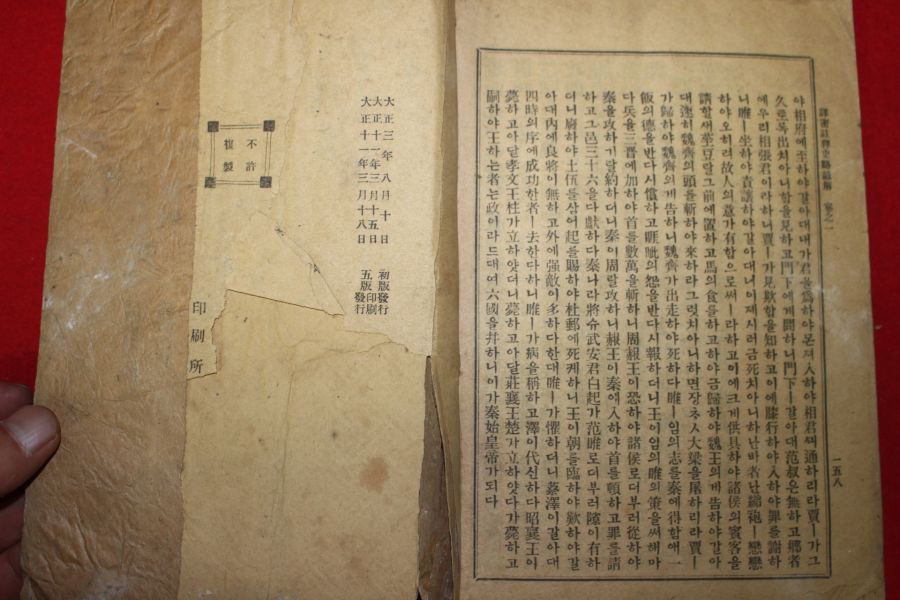 譯著註釋史略諺解 卷之一
一五八
야相府에至하야갈아대내가君을爲하야몬져入하야相君께通하리라賈ㅣ가그
久토록出치아니함을見하고門下에게問하니門下ㅣ갈아대范叔은無하고鄕者
에우리相張君이라하니賈ㅣ가見欺함을知하고이에膝行하야入하야罪를謝하
니睢ㅣ坐하야責讓하야갈아대너이제시러금死치아니하난바者난綈袍ㅣ戀戀
하야오히려故人의意가有함으로써ㅣ라하고이에크게供具하야諸侯의賓客을
請할새莝豆랄그前에置하고馬의食를하고하야금歸하야魏王의게告하야갈아
대速히魏齊의頭를斬하야來하라그럿치아니하면장찻大梁을屠하리라賈ㅣ
가歸하야魏齊의게告하니魏齊가出走하야死하다睢ㅣ임의志를秦에得함애一
飯의德을반다시償하고睚眦의怨을반다시報하더니王이임의睢의策을써해마
다兵을三晋에加하야首를數萬을斬하니周赧王이恐하야諸侯로더부러從하야
秦을攻하기랄約하더니秦이周랄攻하니赧王이秦에入하야首를頓하고罪를請
하고그邑三十六을다獻하다秦나라將슈武安君白起가范睢로더부러隙이有하
더니廢하야士伍를삼어起를賜하야杜郵에死케하니王이朝를臨하야歎하야갈
아대內에良將이無하고外에强敵이多하다한대睢ㅣ가懼하더니蔡澤이갈아대
四時의序에成功한者ㅣ去한다하니睢ㅣ가病을稱하고澤이代신하다昭襄王이
薨하고아달孝文王柱가立하얏더니薨하고아달莊襄王楚가立하얏다가薨하고
嗣하야王하는者는政이라드대여六國을幷하니이가秦始皇帝가되다
大正三年八月十日 初版發行
大正十一年三月十五日 五版印刷
大正十一年三月十八日 五版發行
不許
複製
印刷所